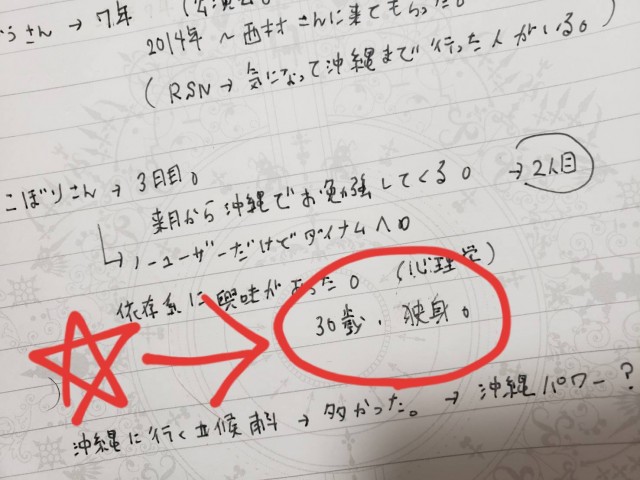 さん → 7年
2014年 ～ 西村さんに来てもらった。
(RSN → 気になって沖縄まで行った人がいる。)
こぼりさん → 3日目。
来月から沖縄でお勉強してくる。 → 2人目
→ ユーザーだけでダイナムへ。
依存系に興味があった。(心理学)
30歳、独身。
沖縄に行く立候補 → 多かった。 → 沖縄パワー？